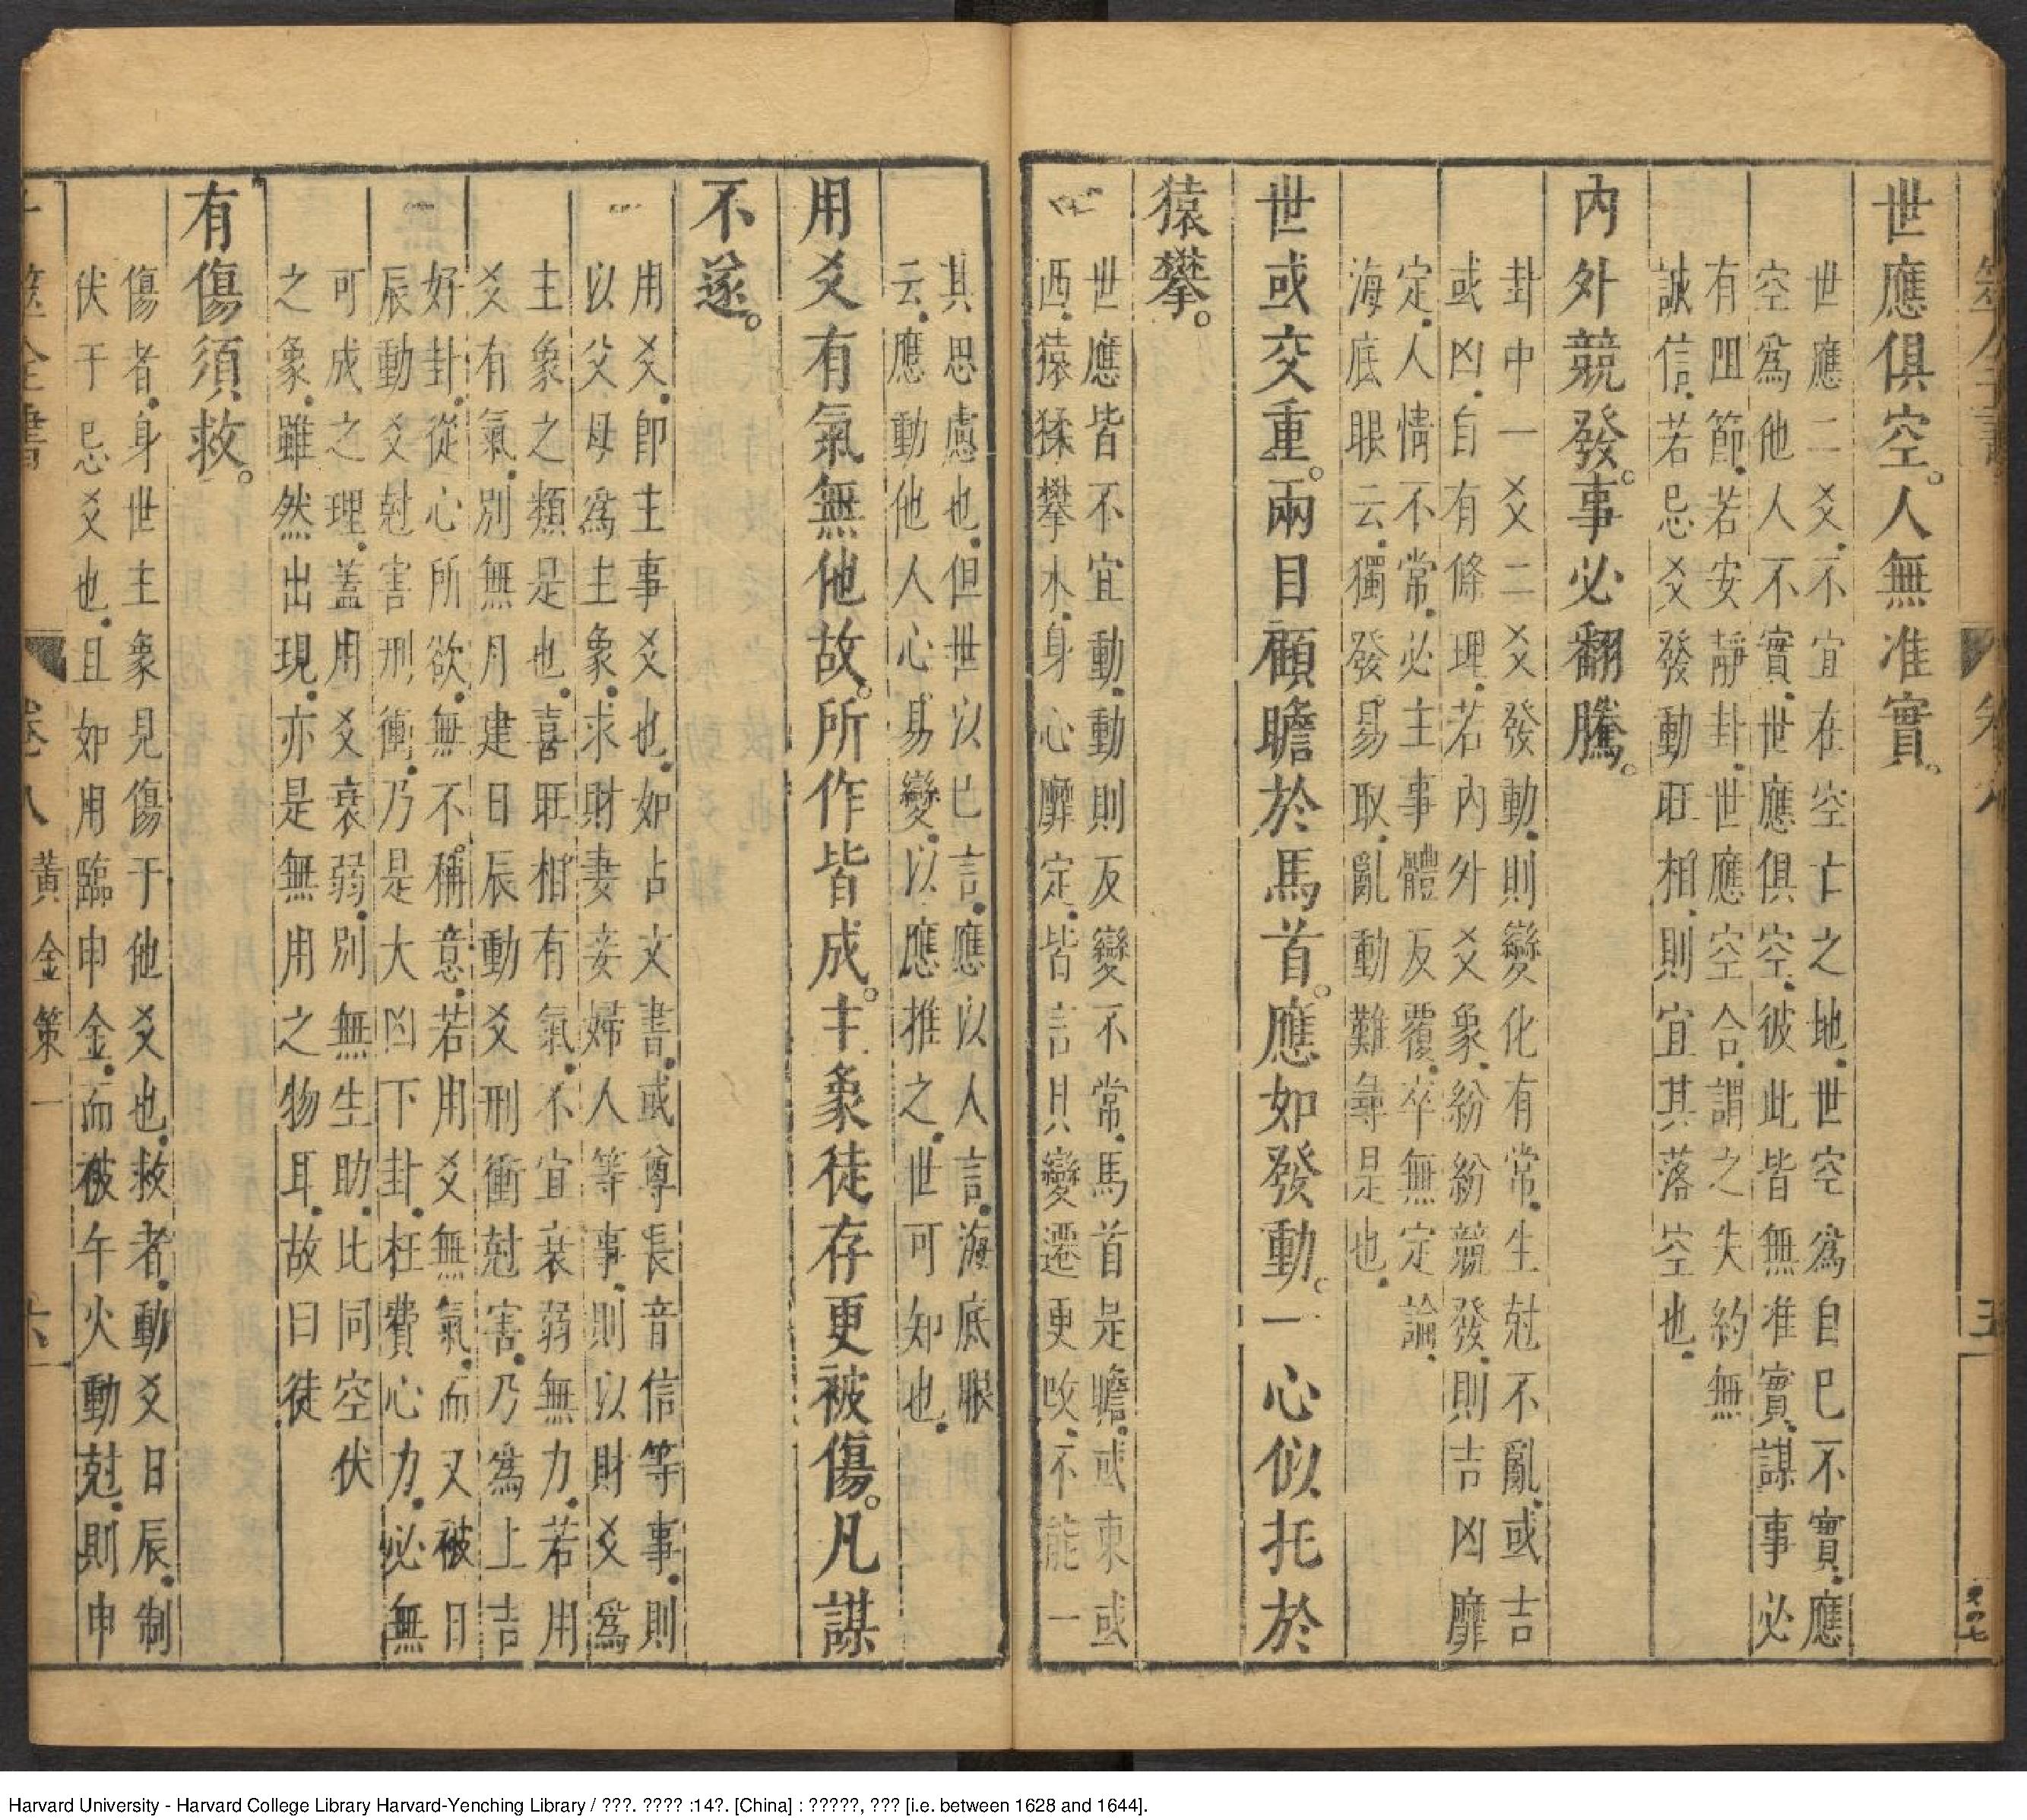 世應俱空。人無准實。
世應二爻。不宜在空亡之地。世空爲自已不實。應
空爲他人不實。世應俱空。彼此皆無准實。謀事必
有阻節。若安靜卦。世應空合。謂之失約無
誠信。若忌爻發動旺相。則宜其落空也。
內外競發。事必翻騰。
卦中一爻二爻發動。則變化有常。生尅不亂。或吉
或凶。自有條理。若內外爻象。紛紛競發。則吉凶靡
定。人情不常。必主事體反覆。卒無定論。
海底眼云。獨發易取。亂動難尋是也。
世或交重。兩目顧瞻於馬首。應如發動。一心似托於
猿攀。
世應皆不宜動。動則反變不常。馬首是瞻。或東或
西。猿猱攀木。身心靡定。皆言其變遷更改。不能一
其思慮也。但世以已言。應以人言。海底眼
云。應動他人心易變。以應推之。世可知也。
用爻有氣無他故。所作皆成。主象徒存更被傷。凡謀
不遂。
用爻。卽主事爻也。如占文書。或尊長音信等事。則
以父母爲主象。求財妻妾婦人等事。則以財爻爲
主象之類是也。喜旺相有氣。不宜衰弱無力。若用
爻有氣。別無月建日辰動爻刑衝尅害。乃爲上吉
好卦。從心所欲。無不稱意。若用爻無氣。而又被日
辰動爻尅害刑衝。乃是大凶下卦。枉費心力。必無
可成之理。蓋用爻衰弱。別無生助。比同空伏
之象。雖然出現。亦是無用之物耳。故曰徒
有傷須救。
傷者。身世主象見傷于他爻也。救者。動爻日辰。制
伏于忌爻也。且如用臨申金。而被午火動尅。則申
卷八 黃金策一 六